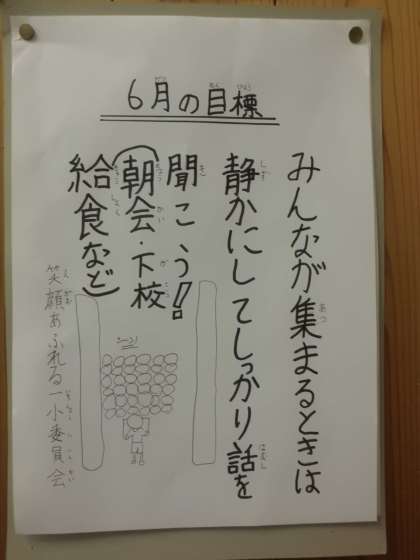 6月の目標
みんなが集まるときは
静かにしてしっかり話を
聞こう!!
(朝会・下校
給食など)
笑顔あふれる一小委員会